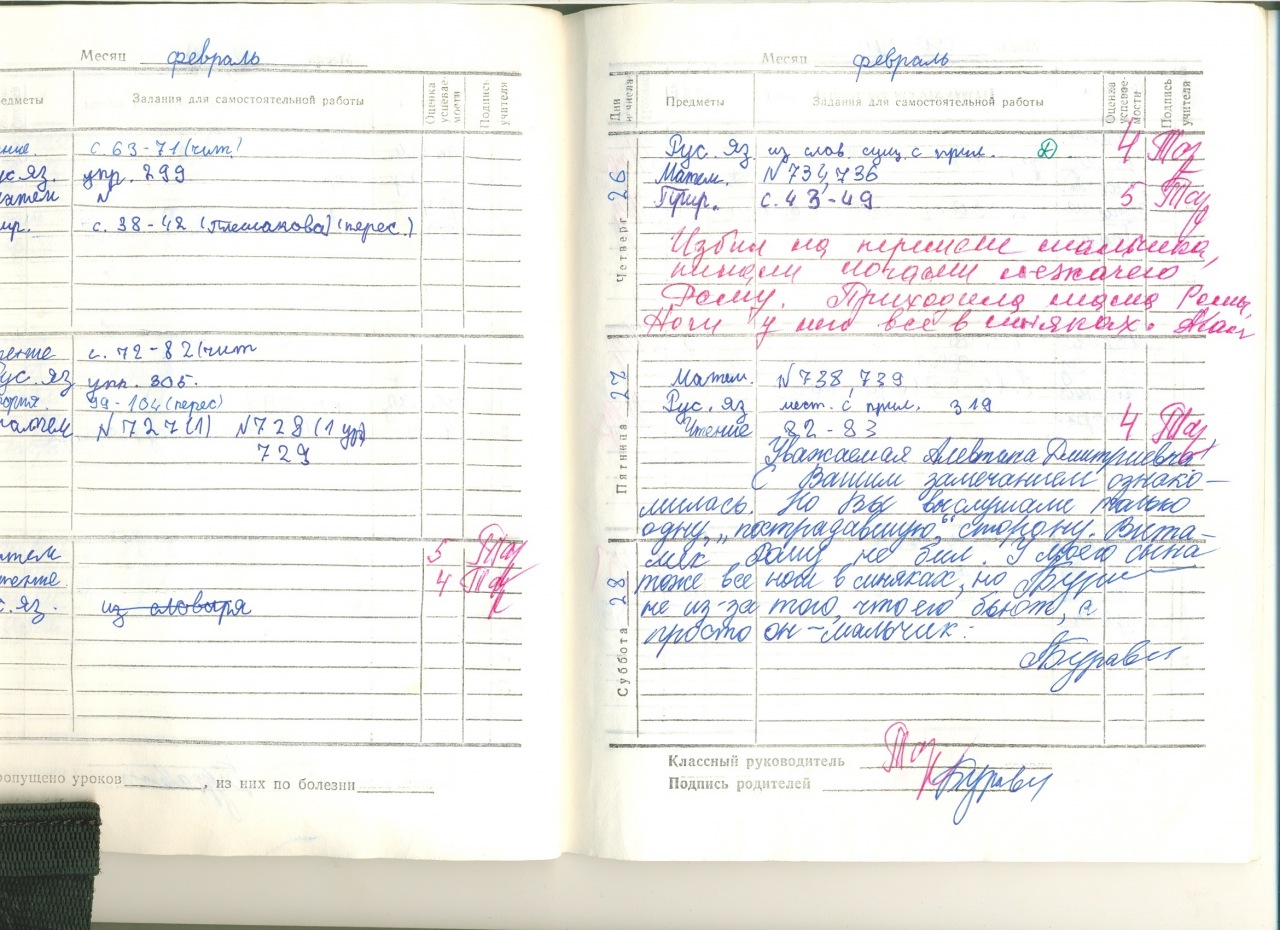 Месяц февраль
едметы Задания для самостоятельной работы Оценка успевае-мости Подпись учителя
ение. с. 63-71 (чит!
ус яз. упр. 299
атем N
ир. с. 38-42 (Плешакова) (перес.)
ение с. 72-82 (чит
Рус. яз упр. 305.
99-104 (перес)
атем N 727(1) N 728 (1 ур)
729
атем 5
тение 4
с. яз. из словаря
ропущено уроков , из них по болезни
Месяц февраль
Дни и числа Предметы Задания для самостоятельной работы Оценка успевае-мости Подпись учителя
Четверг 26
Рус. яз из слов. сущ. с прил. 4
Матем. N 734, 736
Прир. с. 43-49 5
Избил на перемене мальчика,
пинали ногами лежачего
Рому. Приходила мама Ромы,
Ноги у него все в синяках.
Пятница 27
Матем. N 738, 739
Рус. яз мест. с прил. 319
Чтение 82-83 4
Уважаемая Алевтина Дмитриевна!
С Вашим замечанием ознако-
милась. Но Вы выслушали только
одну, „пострадавшую," сторону. Вита-
лик Рому не бил. У моего сына
тоже все ноги в синяках, но
не из-за того, что его бьют, а
просто он - мальчик.
Суббота 28
Классный руководитель
Подпись родителей